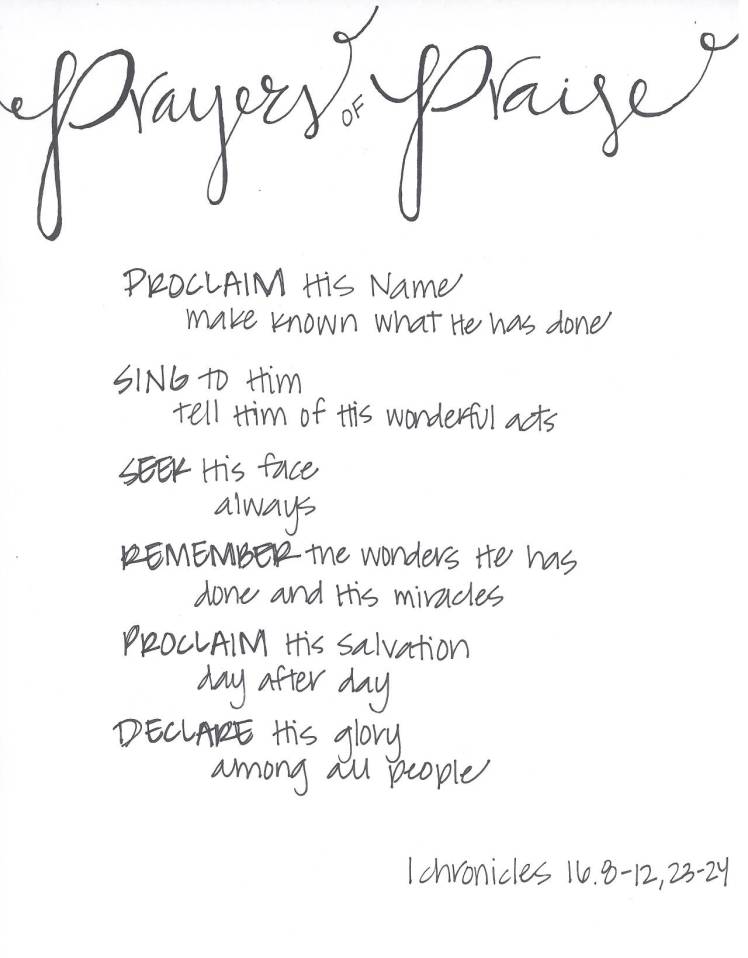 Prayers OF Praise
PROCLAIM His Name
make known what He has done
SING to Him
tell Him of His wonderful acts
SEEK His face
always
REMEMBER the wonders He has
done and His miracles
PROCLAIM His salvation
day after day
DECLARE His glory
among all people
1 chronicles 16.8-12, 23-24